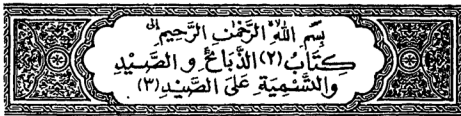 بِسْمِ اللهِ الرَّحْمٰنِ الرَّحِيْمِ
كِتَابُ (٢) الذَّبَائِحُ وَالصَّيْدِ
وَالتَّسْمِيَةِ عَلَى الصَّيْدِ (٣)